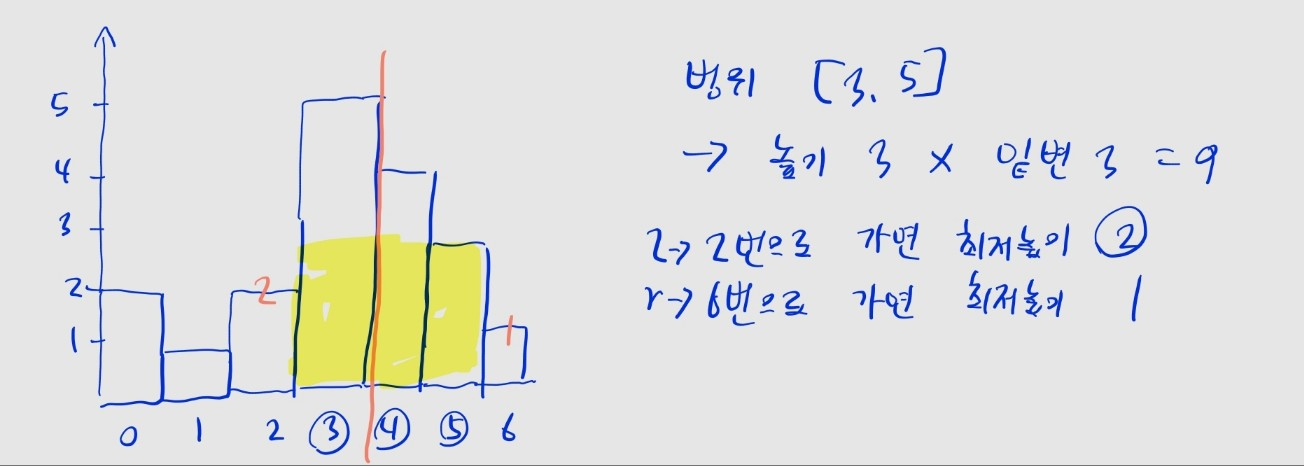 범위 [3, 5]
→ 높기 3 × 밑변 3 = 9
l→ 2번으로 가면 최저높이 2
r→ 6번으로 가면 최저높이 1
5
4
3
2
1
2
1
0 1 2 3 4 5 6